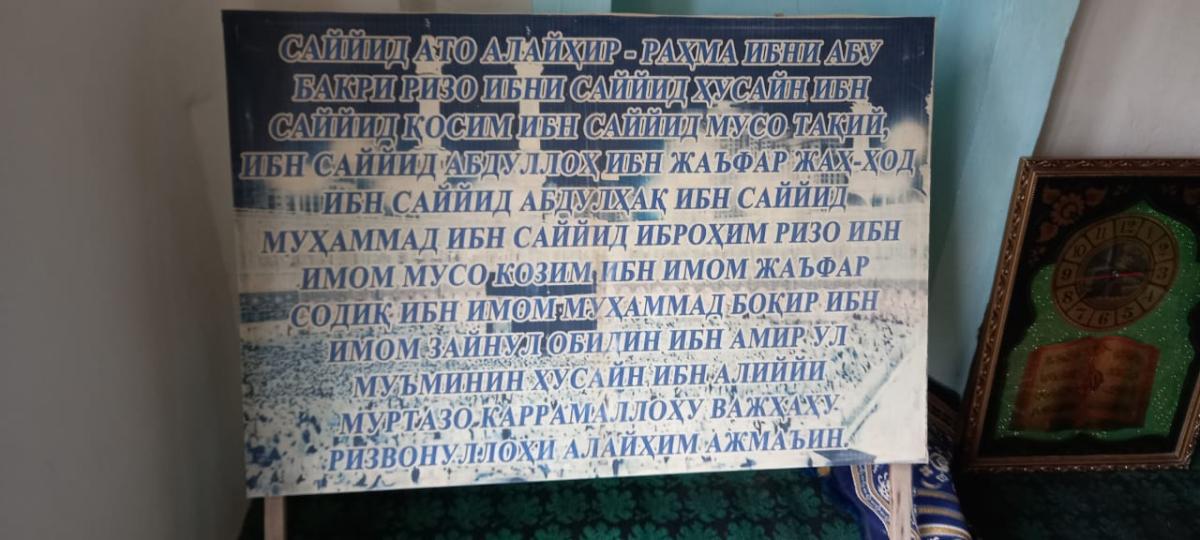 САЙЙИД АТО АЛАЙҲИР - РАҲМА ИБНИ АБУ
БАКРИ РИЗО ИБНИ САЙЙИД ҲУСАЙН ИБН
САЙЙИД ҚОСИМ ИБН САЙЙИД МУСО ТАҚИЙ,
ИБН САЙЙИД АБДУЛЛОҲ ИБН ЖАЪФАР ЖАХ-ҲОД
ИБН САЙЙИД АБДУЛҲАҚ ИБН САЙЙИД
МУҲАММАД ИБН САЙЙИД ИБРОҲИМ РИЗО ИБН
ИМОМ МУСО КОЗИМ ИБН ИМОМ ЖАЪФАР
СОДИҚ ИБН ИМОМ МУҲАММАД БОҚИР ИБН
ИМОМ ЗАЙНУЛ ОБИДИН ИБН АМИР УЛ
МУЪМИНИН ҲУСАЙН ИБН АЛИЙЙИ
МУРТАЗО КАРРАМАЛЛОҲУ ВАЖҲАҲУ
РИЗВОНУЛЛОҲИ АЛАЙҲИМ АЖМАЪИН.
12
11
10
9
8
7
6
5
3